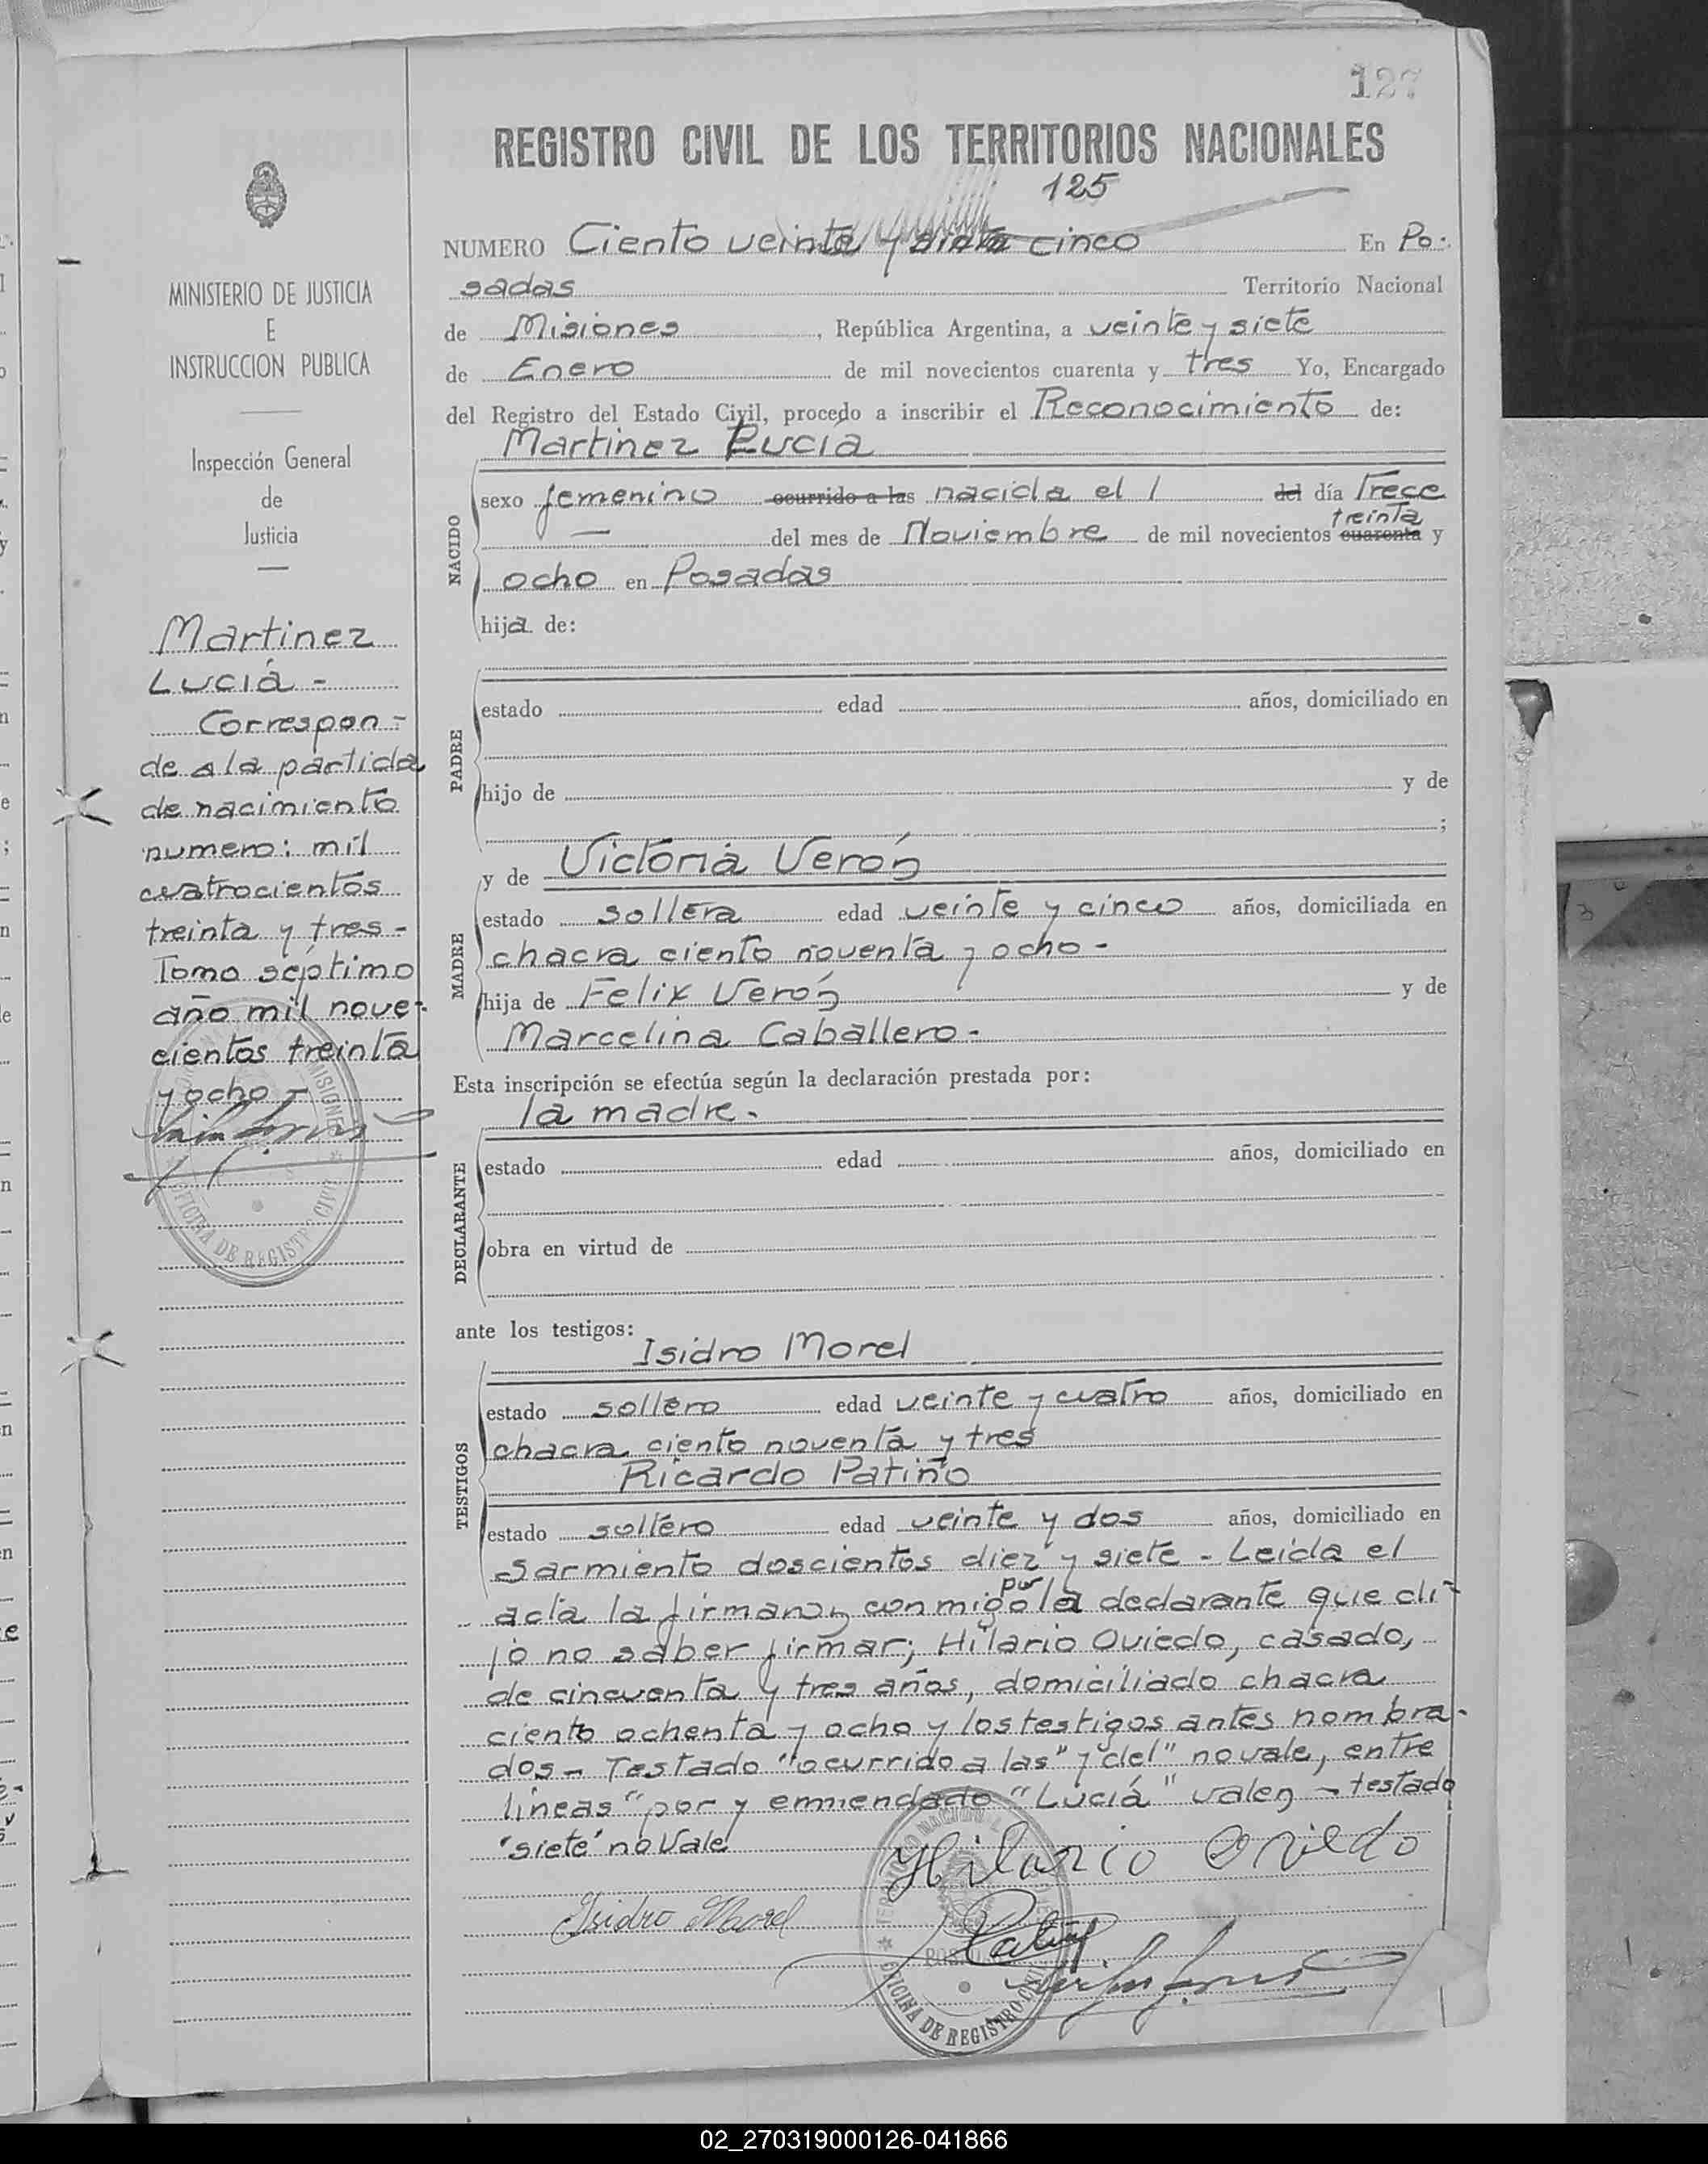 127
REGISTRO CIVIL DE LOS TERRITORIOS NACIONALES
125
NUMERO Ciento veinte y siete cinco En Po-
sadas Territorio Nacional
de Misiones, República Argentina, a veinte y siete
de Enero de mil novecientos cuarenta y tres Yo, Encargado
del Registro del Estado Civil, procedo a inscribir el Reconocimiento de:
Martinez Lucía
NACIDO
sexo femenino ocurrido a las nacida el / del día Trece
treinta
— del mes de Noviembre de mil novecientos cuarenta y
ocho en Posadas
hija de:
PADRE
estado edad años, domiciliado en
hijo de y de
;
y de Victoria Verón
MADRE
estado soltera edad veinte y cinco años, domiciliada en
chacra ciento noventa y ocho -
hija de Felix Verón y de
Marcelina Caballero -
Esta inscripción se efectúa según la declaración prestada por:
la madre.
DECLARANTE
estado edad años, domiciliado en
obra en virtud de
ante los testigos:
Isidro Morel
TESTIGOS
estado soltero edad veinte y cuatro años, domiciliado en
chacra ciento noventa y tres
Ricardo Patiño
estado soltero edad veinte y dos años, domiciliado en
Sarmiento doscientos diez y siete - Leida el
por
acta la firman conmigo la declarante que di-
jo no saber firmar; Hilario Oviedo, casado,
de cincuenta y tres años, domiciliado chacra
ciento ochenta y ocho y los testigos antes nombra-
dos - Testado "ocurrido a las" y "del" no vale, entre
lineas "por y enmendado "Luciá" valen - testado
"siete" no vale
Hilario Oviedo
Isidro Morel
Patiño
TERRITORIO NACIONAL DE
POSADAS
OFICINA DE REGISTRO CIVIL
MINISTERIO DE JUSTICIA
E
INSTRUCCION PUBLICA
Inspección General
de
Justicia
Martinez
Luciá -
Correspon-
de a la partida
de nacimiento
numero: mil
cuatrocientos
treinta y tres -
Tomo séptimo
año mil nove-
cientos treinta
y ocho -
MISIONES
OFICINA DE REGISTRO CIVIL
02_270319000126-041866